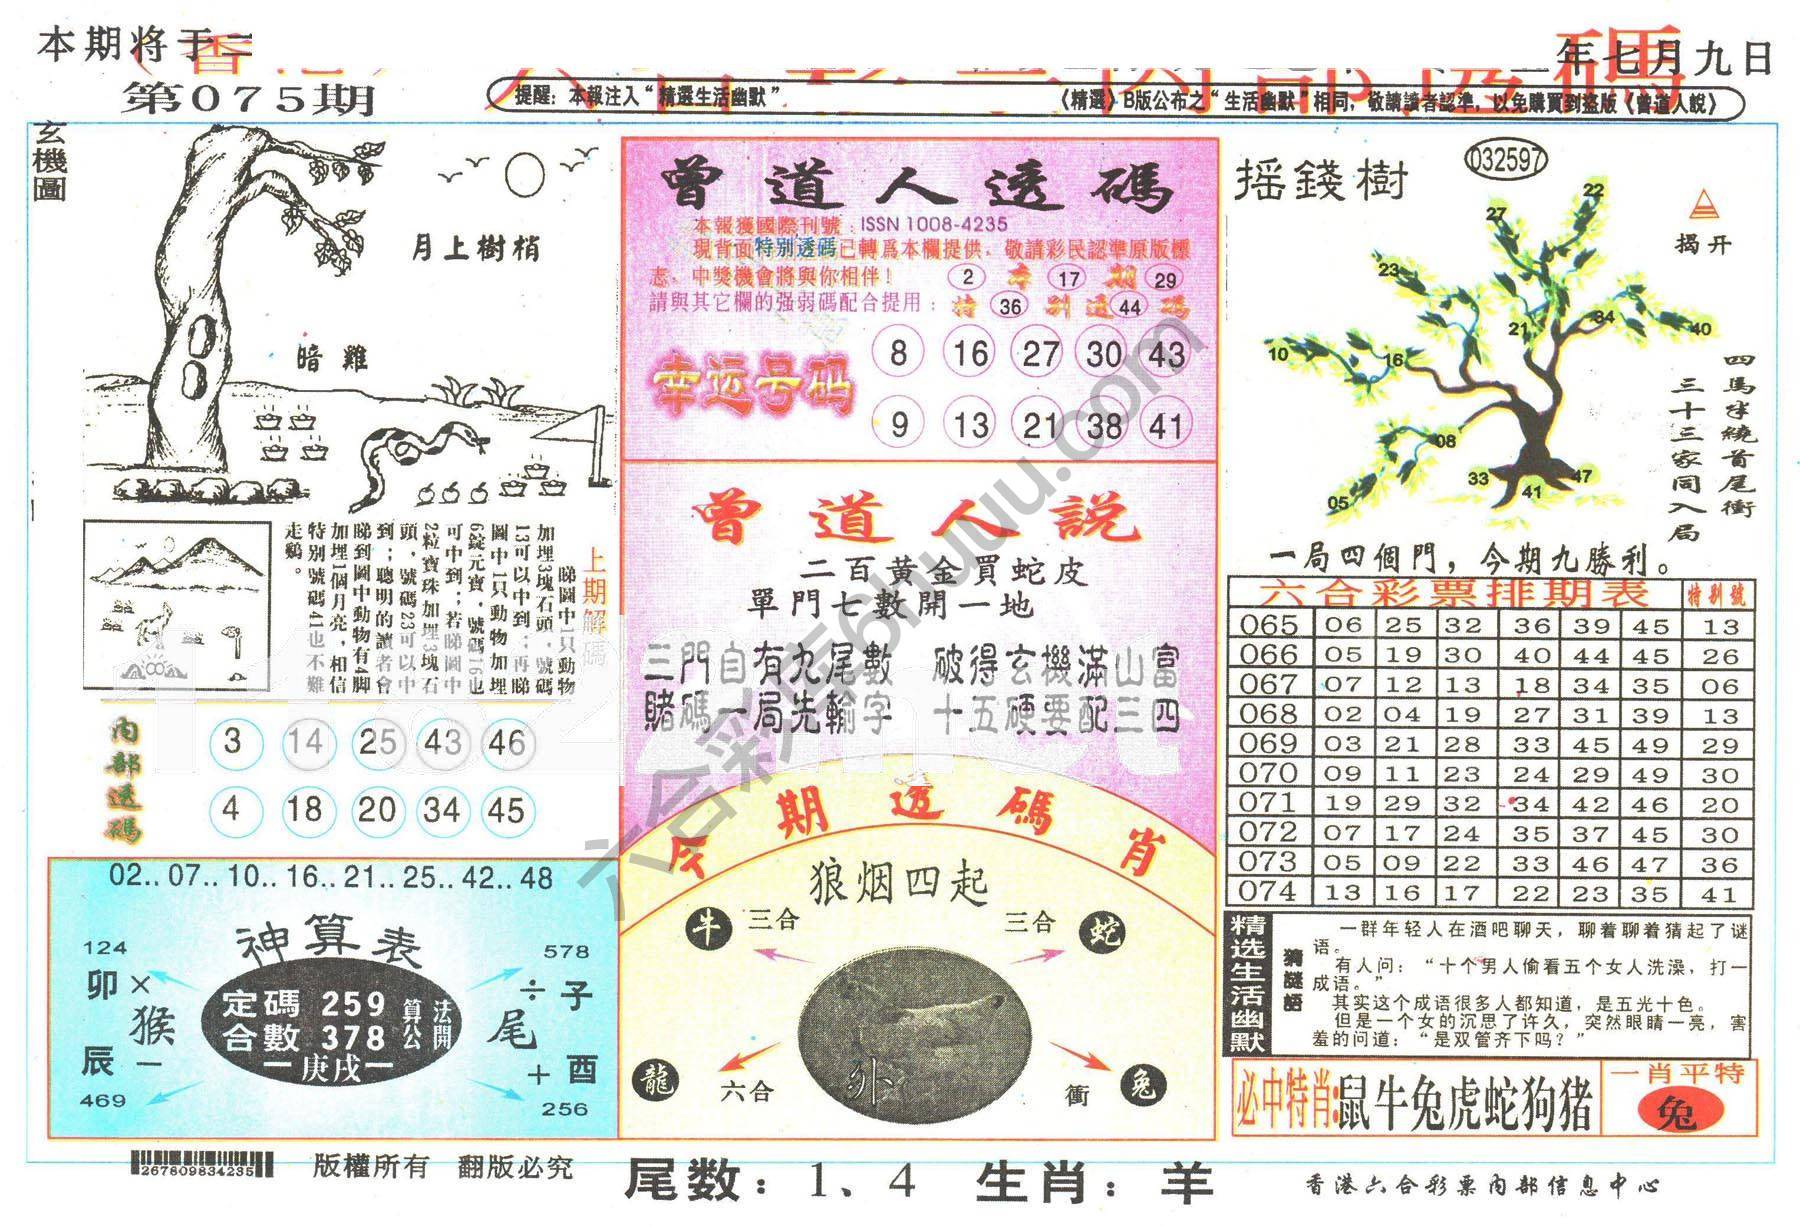 本期将于二
年七月九日
第075期
提醒：本報注入“精選生活幽默”
《精選》B版公布之“生活幽默”相同，敬請讀者認準，以免購買到盜版《曾道人說》
玄機圖
月上樹梢
暗雞
上期解碼
睇圖中1只動物
加埋3塊石頭，號碼
13可以中到；再睇
圖中1只動物加埋
6錠元寶，號碼16也
可中到；若睇圖中
2粒寶珠加埋3塊石
頭，號碼23可以中
到；聰明的讀者會
睇到圖中動物有4脚
加埋1個月亮，相信
特別號碼41也不難
走鷄。
内部透碼
3 14 25 43 46
4 18 20 34 45
02..07..10..16..21..25..42..48
神算表
124
578
卯×
÷子
猴
尾
辰－
＋酉
469
256
定碼 259
合數 378
算公
法開
一庚戌一
267809834235
版權所有 翻版必究
曾道人透碼
本報獲國際刊號：ISSN 1008-4235
現背面特別透碼已轉爲本欄提供，敬請彩民認準原版標
志，中獎機會將與你相伴！
請與其它欄的强弱碼配合提用：
本期
特別透碼
2 17 29
36 44
幸运号码
8 16 27 30 43
9 13 21 38 41
曾道人説
二百黄金買蛇皮
單門七數開一地
三門自有九尾數 破得玄機滿山富
賭碼一局先輸字 十五硬要配三四
今期透碼肖
狼烟四起
牛 三合
三合 蛇
龍 六合
衝 兔
外
尾数：1、4 生肖：羊
摇錢樹
032597
揭开
22
27
23
21
34
40
10
16
08
05
33
41
47
四馬半繞首尾衝
三十三家同入局
一局四個門，今期九勝利。
六合彩票排期表 特别號
065 06 25 32 36 39 45 13
066 05 19 30 40 44 45 26
067 07 12 13 18 34 35 06
068 02 04 19 27 31 39 13
069 03 21 28 33 45 49 29
070 09 11 23 24 29 49 30
071 19 29 32 34 42 46 20
072 07 17 24 35 37 45 30
073 05 09 22 33 46 47 36
074 13 16 17 22 23 35 41
精选生活幽默
猜謎語
一群年轻人在酒吧聊天，聊着聊着猜起了谜
语。
有人问：“十个男人偷看五个女人洗澡，打一
成语。”
其实这个成语很多人都知道，是五光十色。
但是一个女的沉思了许久，突然眼睛一亮，害
羞的问道：“是双管齐下吗？”
必中特肖:鼠牛兔虎蛇狗猪
一肖平特
兔
香港六合彩票内部信息中心
六合彩库6huuu.com